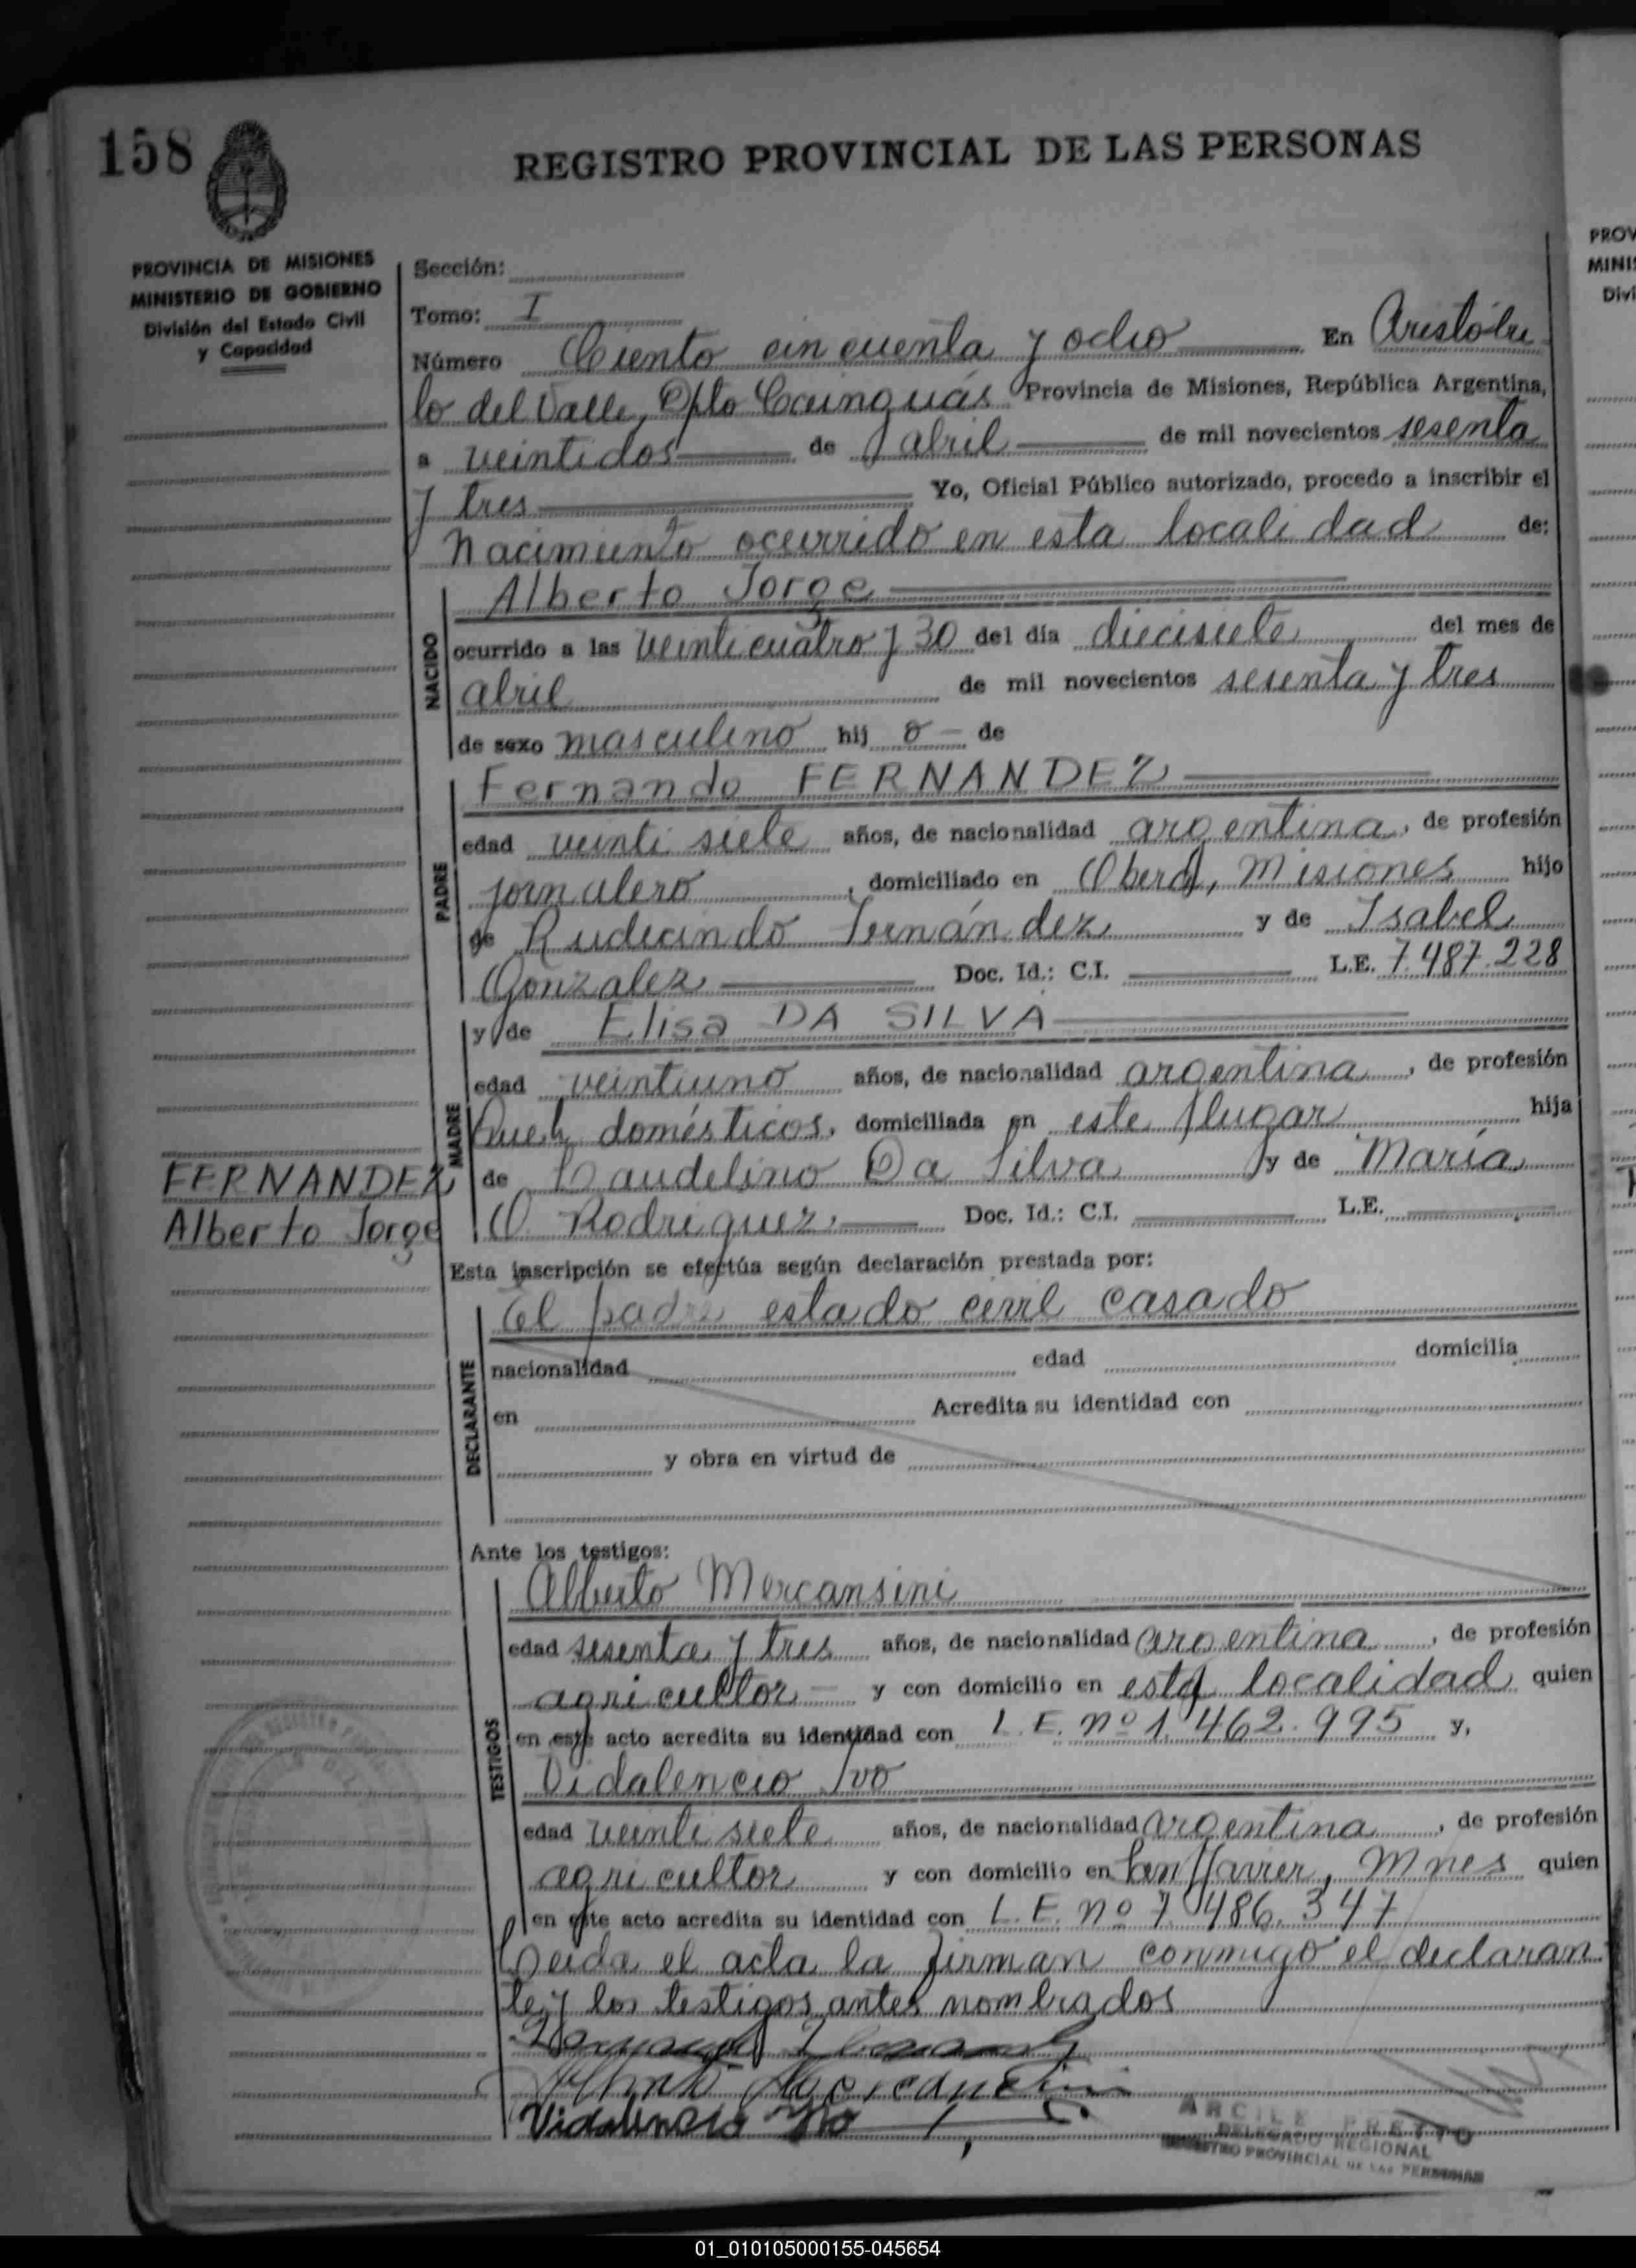 158
REGISTRO PROVINCIAL DE LAS PERSONAS
PROVINCIA DE MISIONES
MINISTERIO DE GOBIERNO
División del Estado Civil
y Capacidad
Sección:
Tomo: I
Número Ciento cincuenta y ocho En Aristóbu
lo del Valle, Dpto Cainguás Provincia de Misiones, República Argentina,
a veintidos de abril de mil novecientos sesenta
y tres Yo, Oficial Público autorizado, procedo a inscribir el
nacimiento ocurrido en esta localidad de:
NACIDO
Alberto Jorge
ocurrido a las veinticuatro y 30 del día diecisiete del mes de
abril de mil novecientos sesenta y tres
de sexo masculino hij o - de
PADRE
Fernando FERNANDEZ
edad veinti siete años, de nacionalidad argentina, de profesión
jornalero, domiciliado en Oberá, Misiones hijo
de Rudecindo Fernández y de Isabel
Gonzalez Doc. Id.: C.I. L.E. 7.487.228
MADRE
y de Elisa DA SILVA
edad veintiuno años, de nacionalidad argentina, de profesión
Queh domésticos, domiciliada en este lugar hija
de Laudelino Da Silva y de María
O. Rodriguez Doc. Id.: C.I. L.E.
FERNANDEZ
Alberto Jorge
Esta inscripción se efectúa según declaración prestada por:
DECLARANTE
El padre estado civil casado
nacionalidad edad domicilia
en Acredita su identidad con
y obra en virtud de
Ante los testigos:
TESTIGOS
Alberto Mercansini
edad sesenta y tres años, de nacionalidad argentina, de profesión
agricultor - y con domicilio en esta localidad quien
en este acto acredita su identidad con L.E. nº 1.462.995 y,
Vidalencio Ivo
edad veinti siete años, de nacionalidad argentina, de profesión
agricultor y con domicilio en San Javier, Mnes quien
en este acto acredita su identidad con L.E. nº 7.486.347
Leida el acta la firman conmigo el declaran
te y los testigos antes nombrados
Vidalencio Ivo
ARCILE PRETTO
DELEGADO REGIONAL
REGISTRO PROVINCIAL DE LAS PERSONAS
PROV
MINIS
Divi
01_010105000155-045654